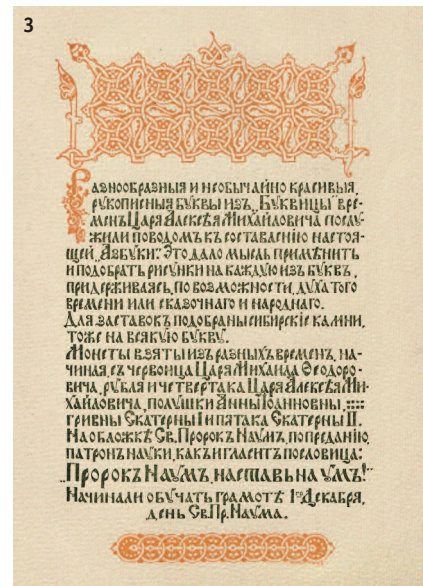 3
Разнообразныя и необычайно красивыя,
рукописныя буквы изъ „Буквицы" вре-
менъ Царя Алексѣя Михайловича послу-
жили поводомъ къ составленію настоя-
щей „Азбуки". Это дало мысль примѣнить
и подобрать рисунки на каждую изъ буквъ,
придерживаясь, по возможности, духа того
времени или сказочнаго и народнаго.
Для заставокъ подобраны сибирскіе камни,
тоже на всякую букву.
Монеты взяты изъ разныхъ временъ, на-
чиная, съ червонца Царя Михаила Ѳеодоро-
вича, рубля и четвертака Царя Алексѣя Ми-
хайловича, полушки Анны Іоанновны,
гривны Екатерины I и пятака Екатерины II.
На обложкѣ Св. Пророкъ Наумъ, по преданію,
патронъ науки, какъ и гласитъ пословица:
„Пророкъ Наумъ, наставь на умъ!"
Начинали обучать грамотѣ 1го Декабря,
день Св. Пр. Наума.